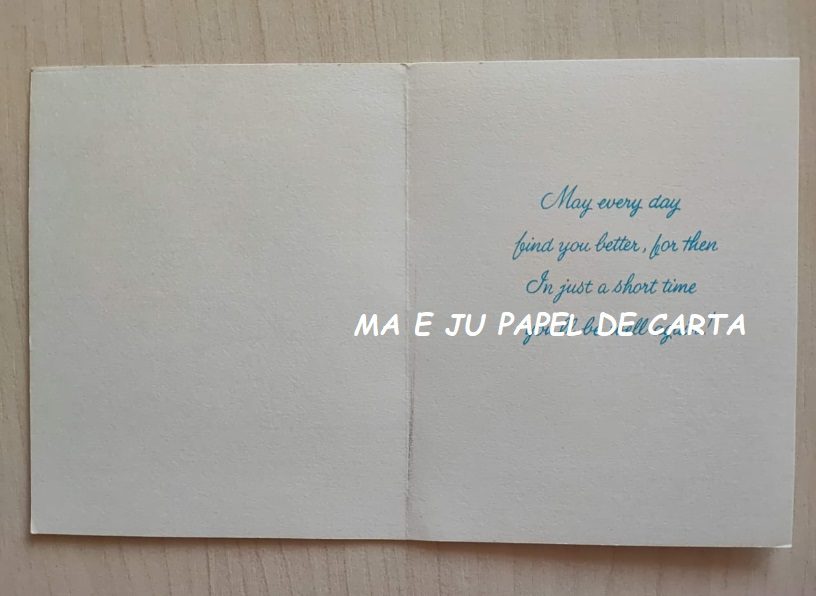 May every day
find you better, for then
In just a short time
you'll be well again!
MA E JU PAPEL DE CARTA